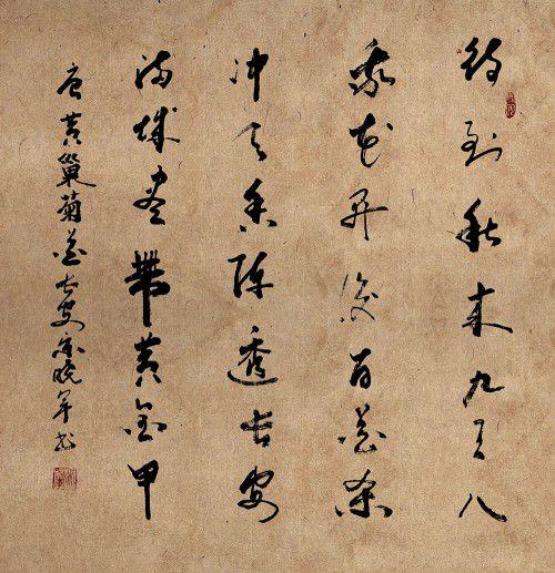 待到秋来九月八
我花开后百花杀
冲天香阵透长安
满城尽带黄金甲
唐黄巢菊花长安宗晓军书